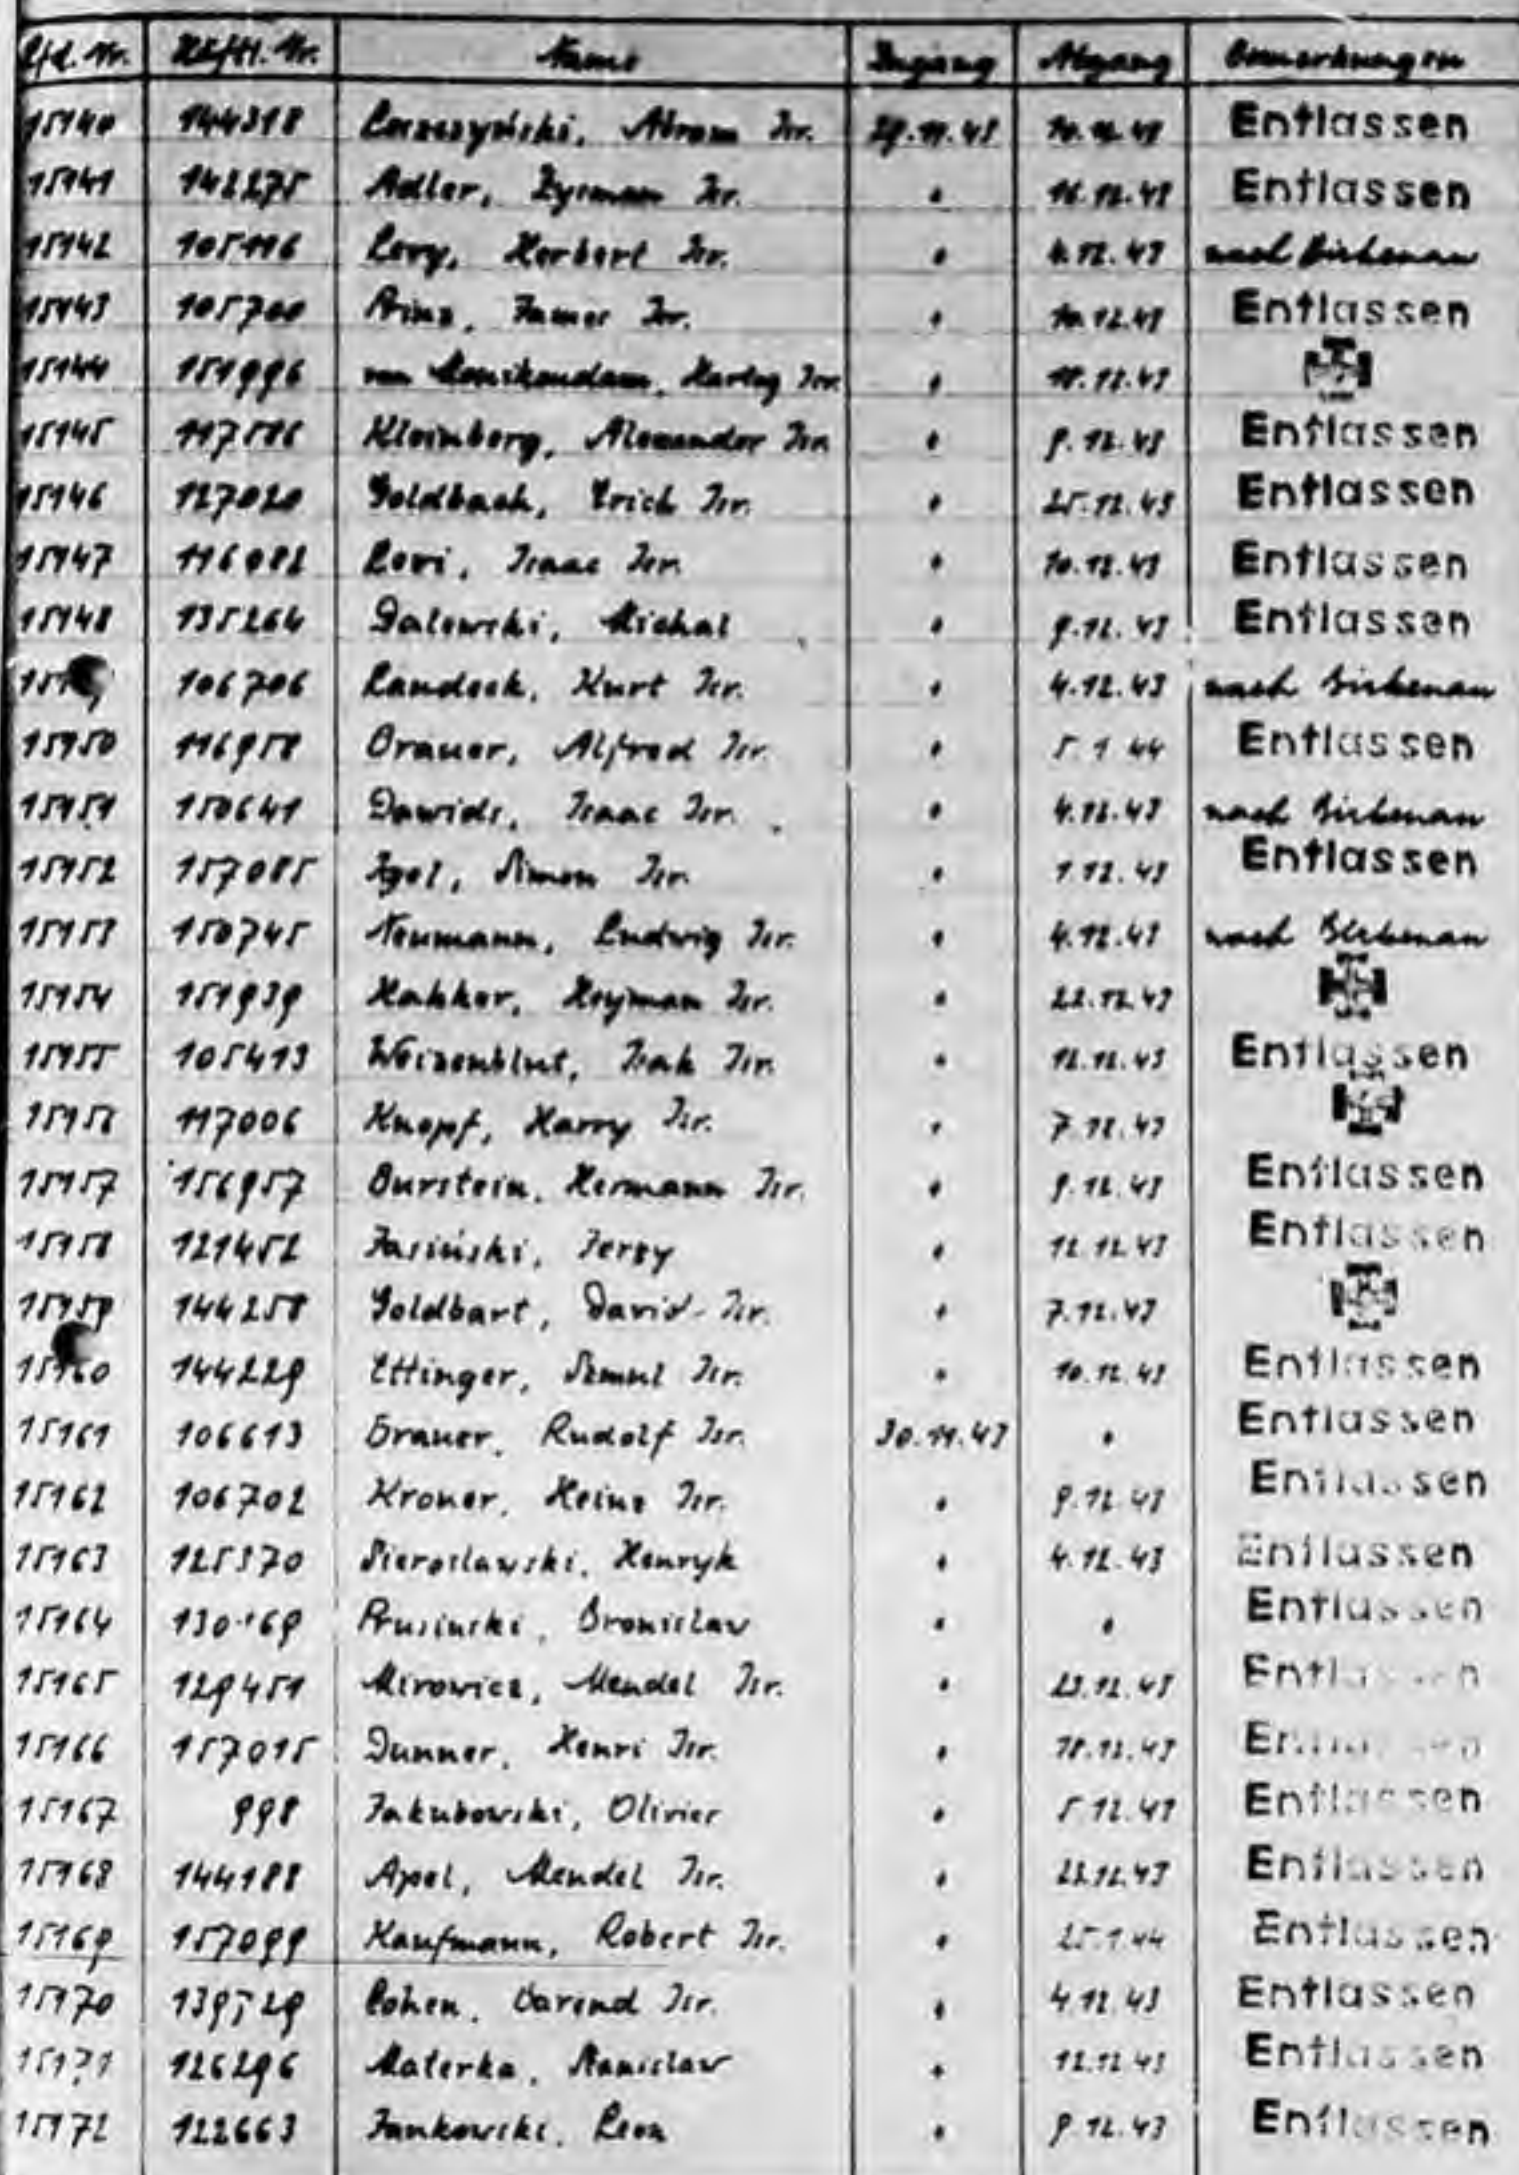 Lfd. Nr. Häftl. Nr. Name Zugang Abgang Bemerkungen
15140 144318 Abram Isr. 29.11.43 10.12.43 Entlassen
15141 142275 Adler, Isr. " 16.12.43 Entlassen
15142 105116 Levy, Herbert Isr. " 4.12.43 nach Birkenau
15143 105700 Prinz, Isr. " 10.12.43 Entlassen
15144 151996 van Monikendam, Hartog Isr. " 18.12.43
15145 117516 Kleinberg, Alexander Isr. " 9.12.43 Entlassen
15146 127020 Goldbach, Erich Isr. " 25.12.43 Entlassen
15147 116082 Levi, Isaac Isr. " 10.12.43 Entlassen
15148 135264 Galewski, Michal " 9.12.43 Entlassen
106706 Landeck, Kurt Isr. " 4.12.43 nach Birkenau
15150 116958 Brauer, Alfred Isr. " 5.1.44 Entlassen
15151 150641 Dawids, Isaac Isr. " 4.12.43 nach Birkenau
15152 157085 Igel, Simon Isr. " 1.12.43 Entlassen
15153 150745 Neumann, Ludwig Isr. " 4.12.43 nach Birkenau
15154 151939 Hakker, Heyman Isr. " 22.12.43
15155 105413 Weizenblut, Isak Isr. " 12.12.43 Entlassen
15156 117006 Knopf, Harry Isr. " 7.12.43
15157 156957 Burstein, Hermann Isr. " 9.12.43 Entlassen
15158 121452 Jasiński, Jerzy " 12.12.43 Entlassen
15159 144258 Goldbart, David Isr. " 7.12.43
15160 144229 Ettinger, Szmul Isr. " 10.12.43 Entlassen
15161 106613 Grauer, Rudolf Isr. 30.11.43 " Entlassen
15162 106702 Kroner, Heinz Isr. " 9.12.43 Entlassen
15163 125370 Sieroslawski, Henryk " 4.12.43 Entlassen
15164 Prusinski, Bronislaw " " Entlassen
15165 129451 Mirowicz, Mendel Isr. " 23.12.43 Entlassen
15166 157015 Dunner, Henri Isr. " 18.12.43 Entlassen
15167 998 Jakubowski, Olivier " 5.12.43 Entlassen
15168 144188 Apel, Mendel Isr. " 23.12.43 Entlassen
15169 157099 Kaufmann, Robert Isr. " 25.1.44 Entlassen
15170 139529 Cohen, Barend Isr. " 4.12.43 Entlassen
15171 126296 Materka, Stanislaw " 12.12.43 Entlassen
15172 122663 Jankowski, Leon " 9.12.43 Entlassen